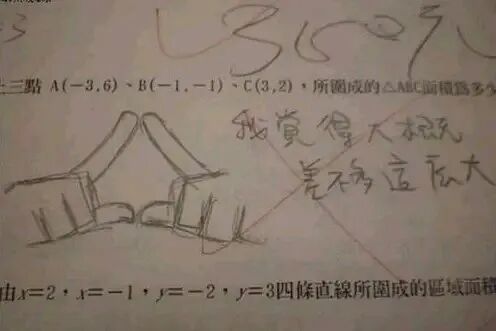 上三點 A(-3,6)、B(-1,-1)、C(3,2),所圍成的△ABC面積為多少
我覺得大概
差不多這麼大
由x=2,x=-1,y=-2,y=3四條直線所圍成的區域面積